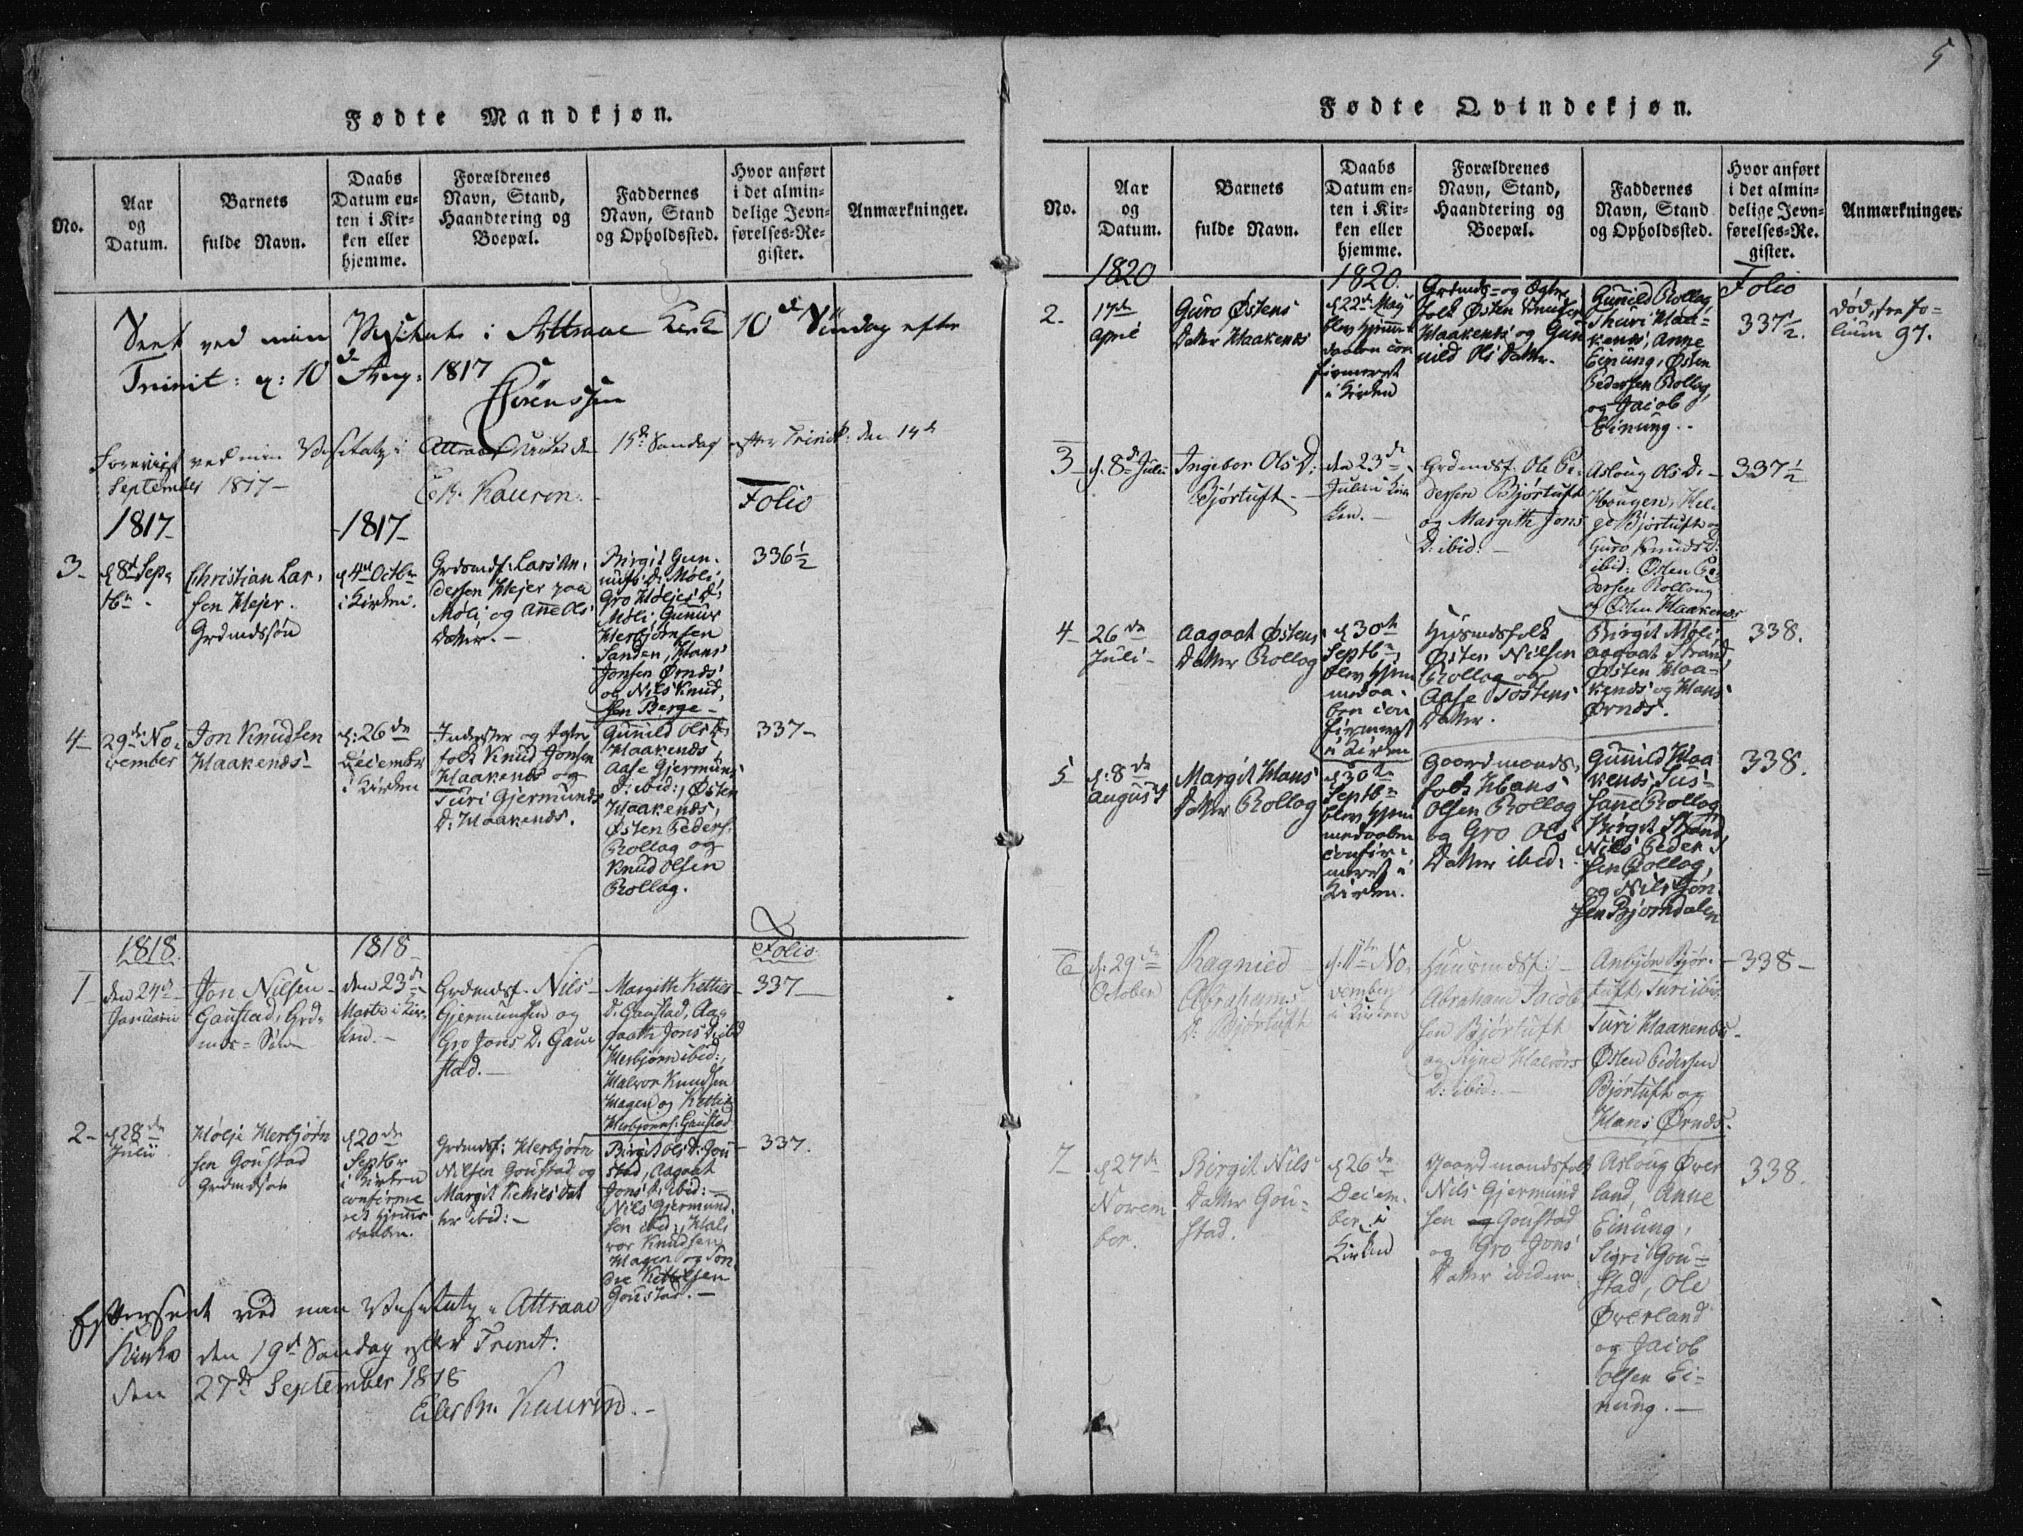 5
Fødte Mandkjøn.
No.
Aar
og
Datum.
Barnets
fulde Navn.
Daabs
Datum en-
ten i Kir-
ken eller
hjemme.
Forældrenes
Navn, Stand,
Haandtering og
Boepæl.
Faddernes
Navn, Stand
og Opholdssted.
Hvor anført
i det almin-
delige Jevn-
førelses-Re-
gister.
Anmærkninger.
Seet ved min Visitats i Attraae Kirk 10de Søndag efter
Trinit: d: 10de Aug: 1817
Sørenssen
Foreviist ved min Visitatz i Attraae Kirke den 15de Søndag efter Trinit: den 14de
September 1817-
Kaurin.
Folio
1817
1817
3.
d 8de Sep-
tbr.
Christian Lar-
sen Hejer.
Grdmdssøn
d 4de Octbr
i Kirken.
Grdmdsf: Lars An-
dersen Hejer paa
Møli og Ane Ols
Datter.
Birgit Gun-
nufs D: Møli,
Gro Høljes D:
Møli, Gunuf
Herbjørnsen
Sanden, Hans
Jonsen Ørnes
og Nils Knud-
sen Berge-
336½
4
29de No-
vember
Jon Knudsen
Haakenæs
d: 26de
Decembr
i Kirken
Inderster og Ægte
folk Knud Jonsen
Haakenæs og
Turi Gjermunds
D: Haakenæs.
Gunild Ols D:
Haakenæs,
Aase Gjermunds
D: ibid:, Østen
Haakenæs,
Østen Peders:
Rollag og
Knud Olsen
Rollag.
337
1818
1818
Folio
1
den 24de
Januarii
Jon Nilsen
Gaustad, Grd-
mds-Søn
den 23de
Marts i Kir-
ken.
Grdmdsf. Nils
Gjermundsen og
Gro Jons D. Gau-
stad.
Margith Kettils
D. Gaustad, Aa-
gaath Jons D. ibid
Herbjørn ibid:,
Halvor Knudsen
Hagen og Kettil
Herbjørns: Gaustad
337
2
d 28de
Julii
Hølje Herbjørn
sen Goustad
Grdmdsøn
d 20de
Septbr
i Kirken
confirme
ret hjemme
daaben.
Grdmdsf: Herbjørn
Nilsen Goustad og
Margit Ketils Dat
ter ibid:
Birgit Ols D: Gou
stad, Aagaat
Jons D: ibid:
Nils Gjermund
sen ibid:, Hal
vor Knudsen
Hagen og Ton
dre Kettilsen
Goustad.
337.
Eftterseet ved min Visitatz i Attraae
Kirke den 19de Søndag efter Trinit:
den 27de September 1818
Eiler Kaurin.
Fødte Qvindekjøn.
No.
Aar
og
Datum.
Barnets
fulde Navn.
Daabs
Datum en-
ten i Kir-
ken eller
hjemme.
Forældrenes
Navn, Stand,
Haandtering og
Boepæl.
Faddernes
Navn, Stand
og Opholdssted.
Hvor anført
i det almin-
delige Jevn-
førelses-Re-
gister.
Anmærkninger.
1820
1820.
Folio
2.
17de
April
Guro Østens
Datter Haakenæs
d 22de Maij
blev hjemme
daaben con
firmeret
i Kirken
Grdmds- og Ægte
folk Østen Knudsen
Haakenæs og Gun
nild Ols Datter.
Gunild Rollag,
Thuri Haa-
kenæs, Anne
Einung, Østen
Pedersen Rollag
og Jacob
Einung.
337½.
død, see fo-
lium 97.
3
d. 8de Julii
Ingebor Ols D:
Bjørtuft
den 23de
Julii i Kir
ken.
Grdmdsf: Ole Pe-
dersen Bjørtuft
og Margith Jons
D: ibid:
Asloug Ols D.
Hougen, Hel-
ge Bjørtuft og
Guro Knuds D:
ibid: Østen Pe-
dersen Rollag
og Østen Haakenæs
337½
4
26de
Juli
Aagaat Østens
Datter Rollag
d 30te
Septbr
blev hjem
medaa-
ben con
firmeret
i Kirken
Huusmdsfolk
Østen Nilsen
Rollag og
Aase Tostens
Datter.
Birgit Møli
Aagaat Strand,
Østen Haa-
kenæs og Hans
Ørnæs.
338.
5
d: 8de
August
Margit Hans
Datter Rollag
d 30te
Septbr
blev hjem
medaaben
confir-
meret i
Kirken.
Gaardmands-
folk Hans
Olsen Rollag
og Gro Ols
Datter ibid:
Gunild Haa
kenæs, Sus-
sane Rollag
Birgit Strand,
Nils Peder-
sen Rollag,
og Nils Jon-
sen Bjørndalen
338.
6
d: 29de
October
Ragnied
Abrahams
D: Bjørtuft
d. 11te No-
vember
i Kirken
Huusmdsf:
Abraham Jacob
sen Bjørtuft
og Signe Halvors
D: ibid:
Anbjør Bjør-
tuft, Turi ibid
Turi Haakenæs
Østen Pedersen
Bjørtuft og
Hans Ørnæs.
338
7
d 27de
Novem
ber.
Birgit Nils
Datter Gou-
stad.
d 26de
Decem-
ber i
Kirken
Gaardmandsfolk
Nils Gjermund
sen og Goustad
og Gro Jons
Datter ibidem
Asloug Øver
land, Anne
Einung,
Sigri Gou-
stad, Ole
Øverland
og Jacob
Olsen Ei-
nung.
338.